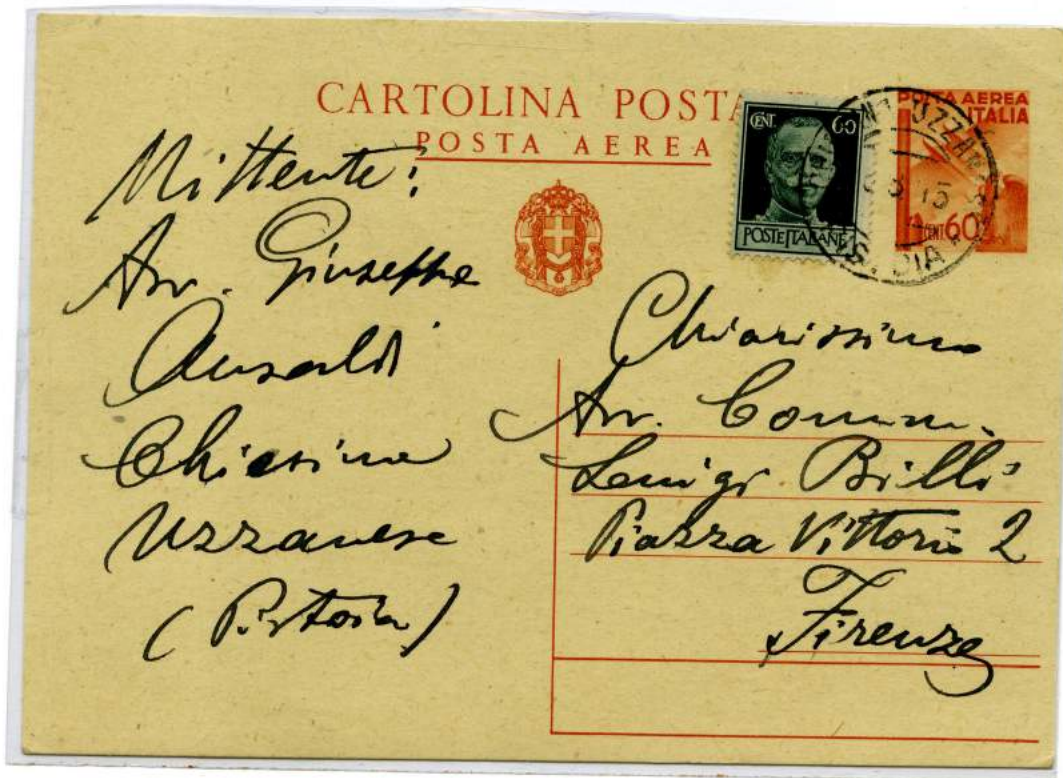 CARTOLINA POSTA
POSTA AEREA
CENT. 60
POSTE ITALIANE
POSTA AEREA
ITALIA
CENT 60
UZZANESE
Mittente:
Avv. Giuseppe
Ansaldi
Chiesina
Uzzanese
(Pistoia)
Chiarissimo
Avv. Comm.
Luigi Billi
Piazza Vittorio 2
Firenze